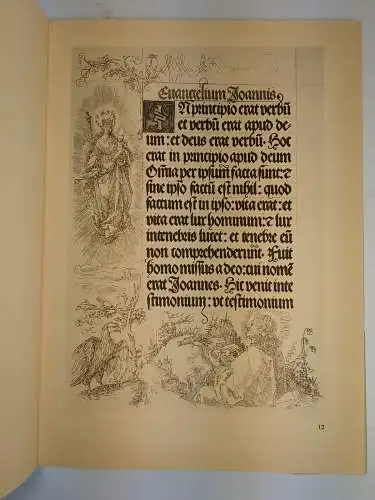 Euangelium Joannis
IN principio erat verbũ
et verbũ erat apud de-
um: et deus erat verbũ. Hoc
erat in principio apud deum
Om̃ia per ipsum̃ facta sunt: ⁊
sine ipso factũ est nihil: quod
factum est in ipso: vita erat: et
vita erat lux hominum: ⁊ lux
in tenebris lucet: et tenebre eũ
non comprehenderũnt. Fuit
homo missus a deo: cui nomẽ
erat Joannes. Hic venit in te
stimonium: vt testimonium
12